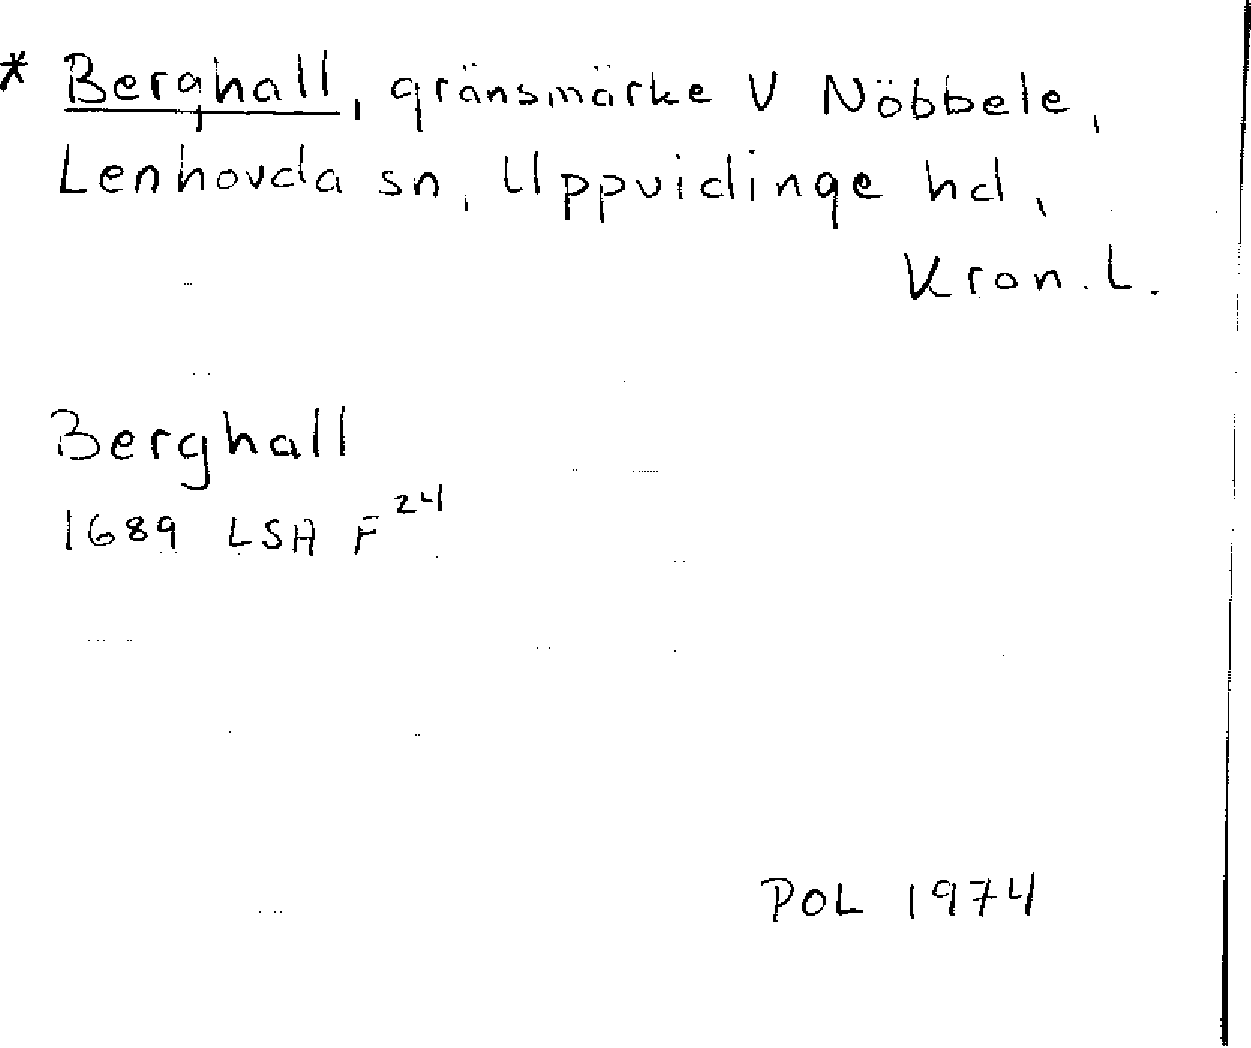 * Berghall, gränsmärke V Nöbbele,
Lenhovda sn, Uppvidinge hd,
Kron. L.
Berghall
1689 LSA F 24
POL 1974